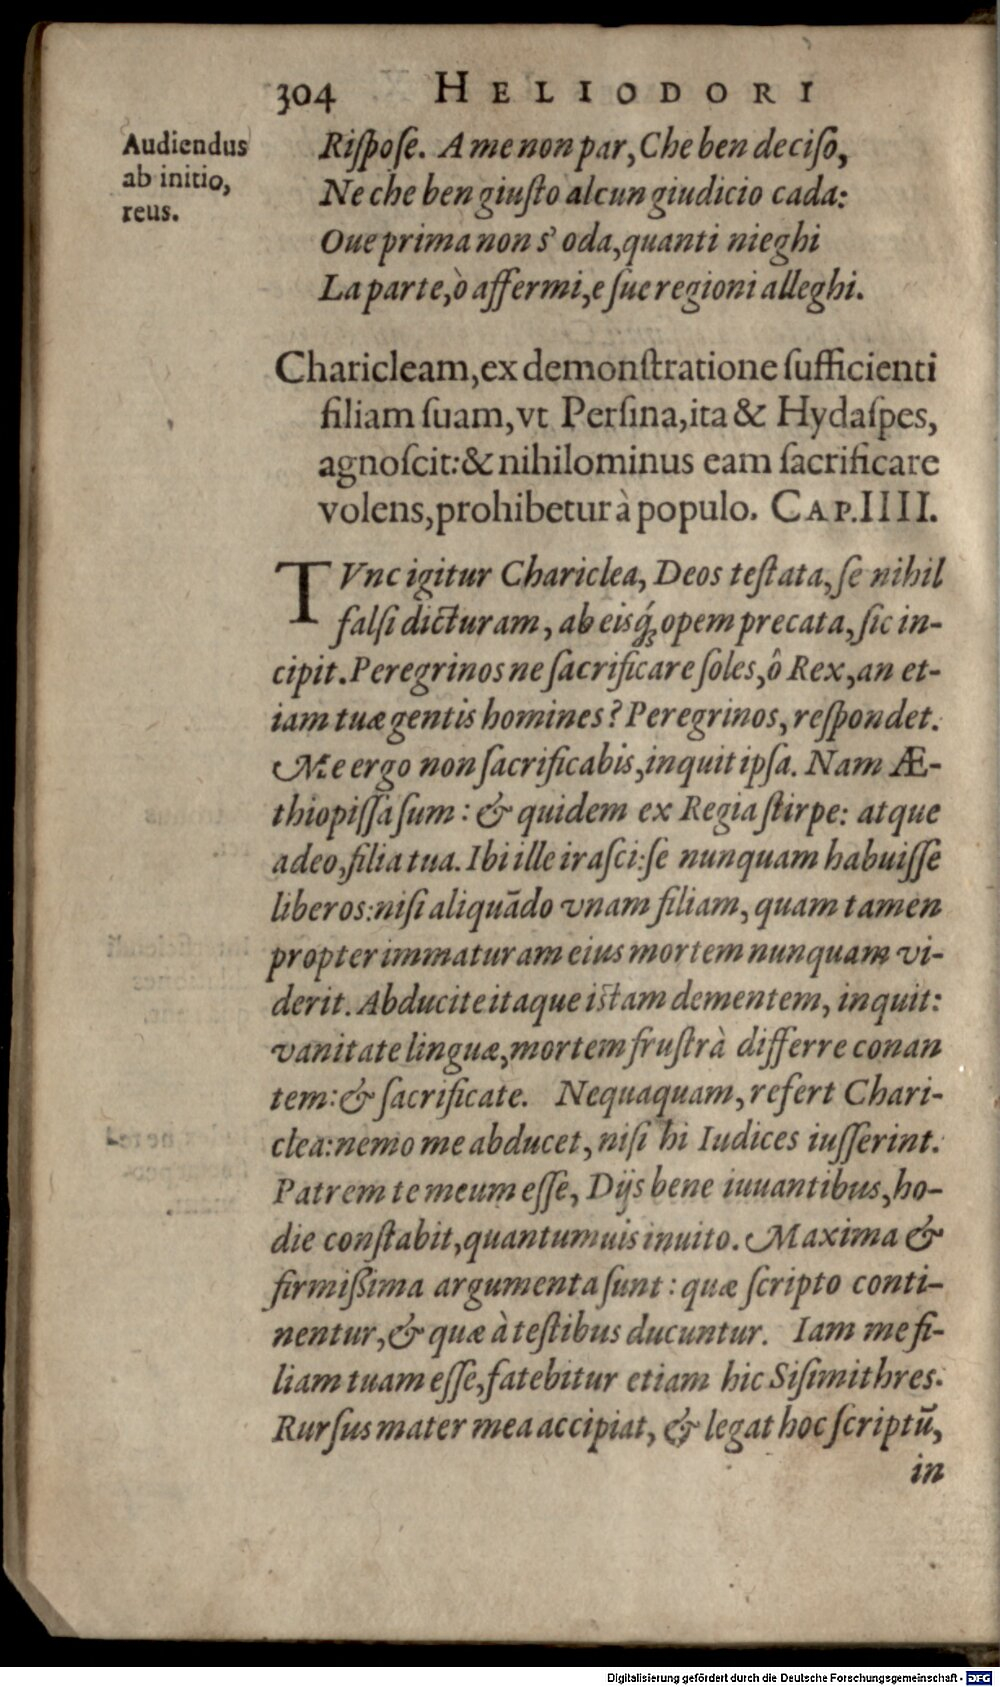 304 HELIODORI
Audiendus
ab initio,
reus.
Riſpoſe. A me non par, Che ben deciſo,
Ne che ben giuſto alcun giudicio cada:
Oue prima non s' oda, quanti nieghi
La parte, ò affermi, e ſue regioni alleghi.
Charicleam, ex demonſtratione ſufficienti
filiam ſuam, vt Perſina, ita & Hydaſpes,
agnoſcit: & nihilominus eam ſacrificare
volens, prohibetur à populo. CAP. IIII.
TVnc igitur Chariclea, Deos teſtata, ſe nihil
falſi dicturam, ab eisq́; opem precata, ſic in-
cipit. Peregrinos ne ſacrificare ſoles, ô Rex, an et-
iam tuæ gentis homines? Peregrinos, reſpondet.
Me ergo non ſacrificabis, inquit ipſa. Nam Æ-
thiopiſſa ſum: & quidem ex Regia ſtirpe: atque
adeo, filia tua. Ibi ille iraſci: ſe nunquam habuiſſe
liberos: niſi aliquādo vnam filiam, quam tamen
propter immaturam eius mortem nunquam vi-
derit. Abducite itaque iſtam dementem, inquit:
vanitate linguæ, mortem fruſtrà differre conan
tem: & ſacrificate. Nequaquam, refert Chari-
clea: nemo me abducet, niſi hi Iudices iuſſerint.
Patrem te meum eſſe, Dijs bene iuuantibus, ho-
die conſtabit, quantumuis inuito. Maxima &
firmiſſima argumenta ſunt: quæ ſcripto conti-
nentur, & quæ à teſtibus ducuntur. Iam me fi-
liam tuam eſſe, fatebitur etiam hic Siſimithres.
Rurſus mater mea accipiat, & legat hoc ſcriptū,
in
Digitalisierung gefördert durch die Deutsche Forschungsgemeinschaft - DFG